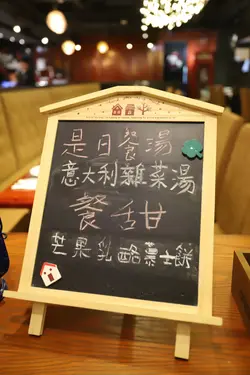 是日餐湯
意大利雜菜湯
餐甜
芒果乳酪慕士餅